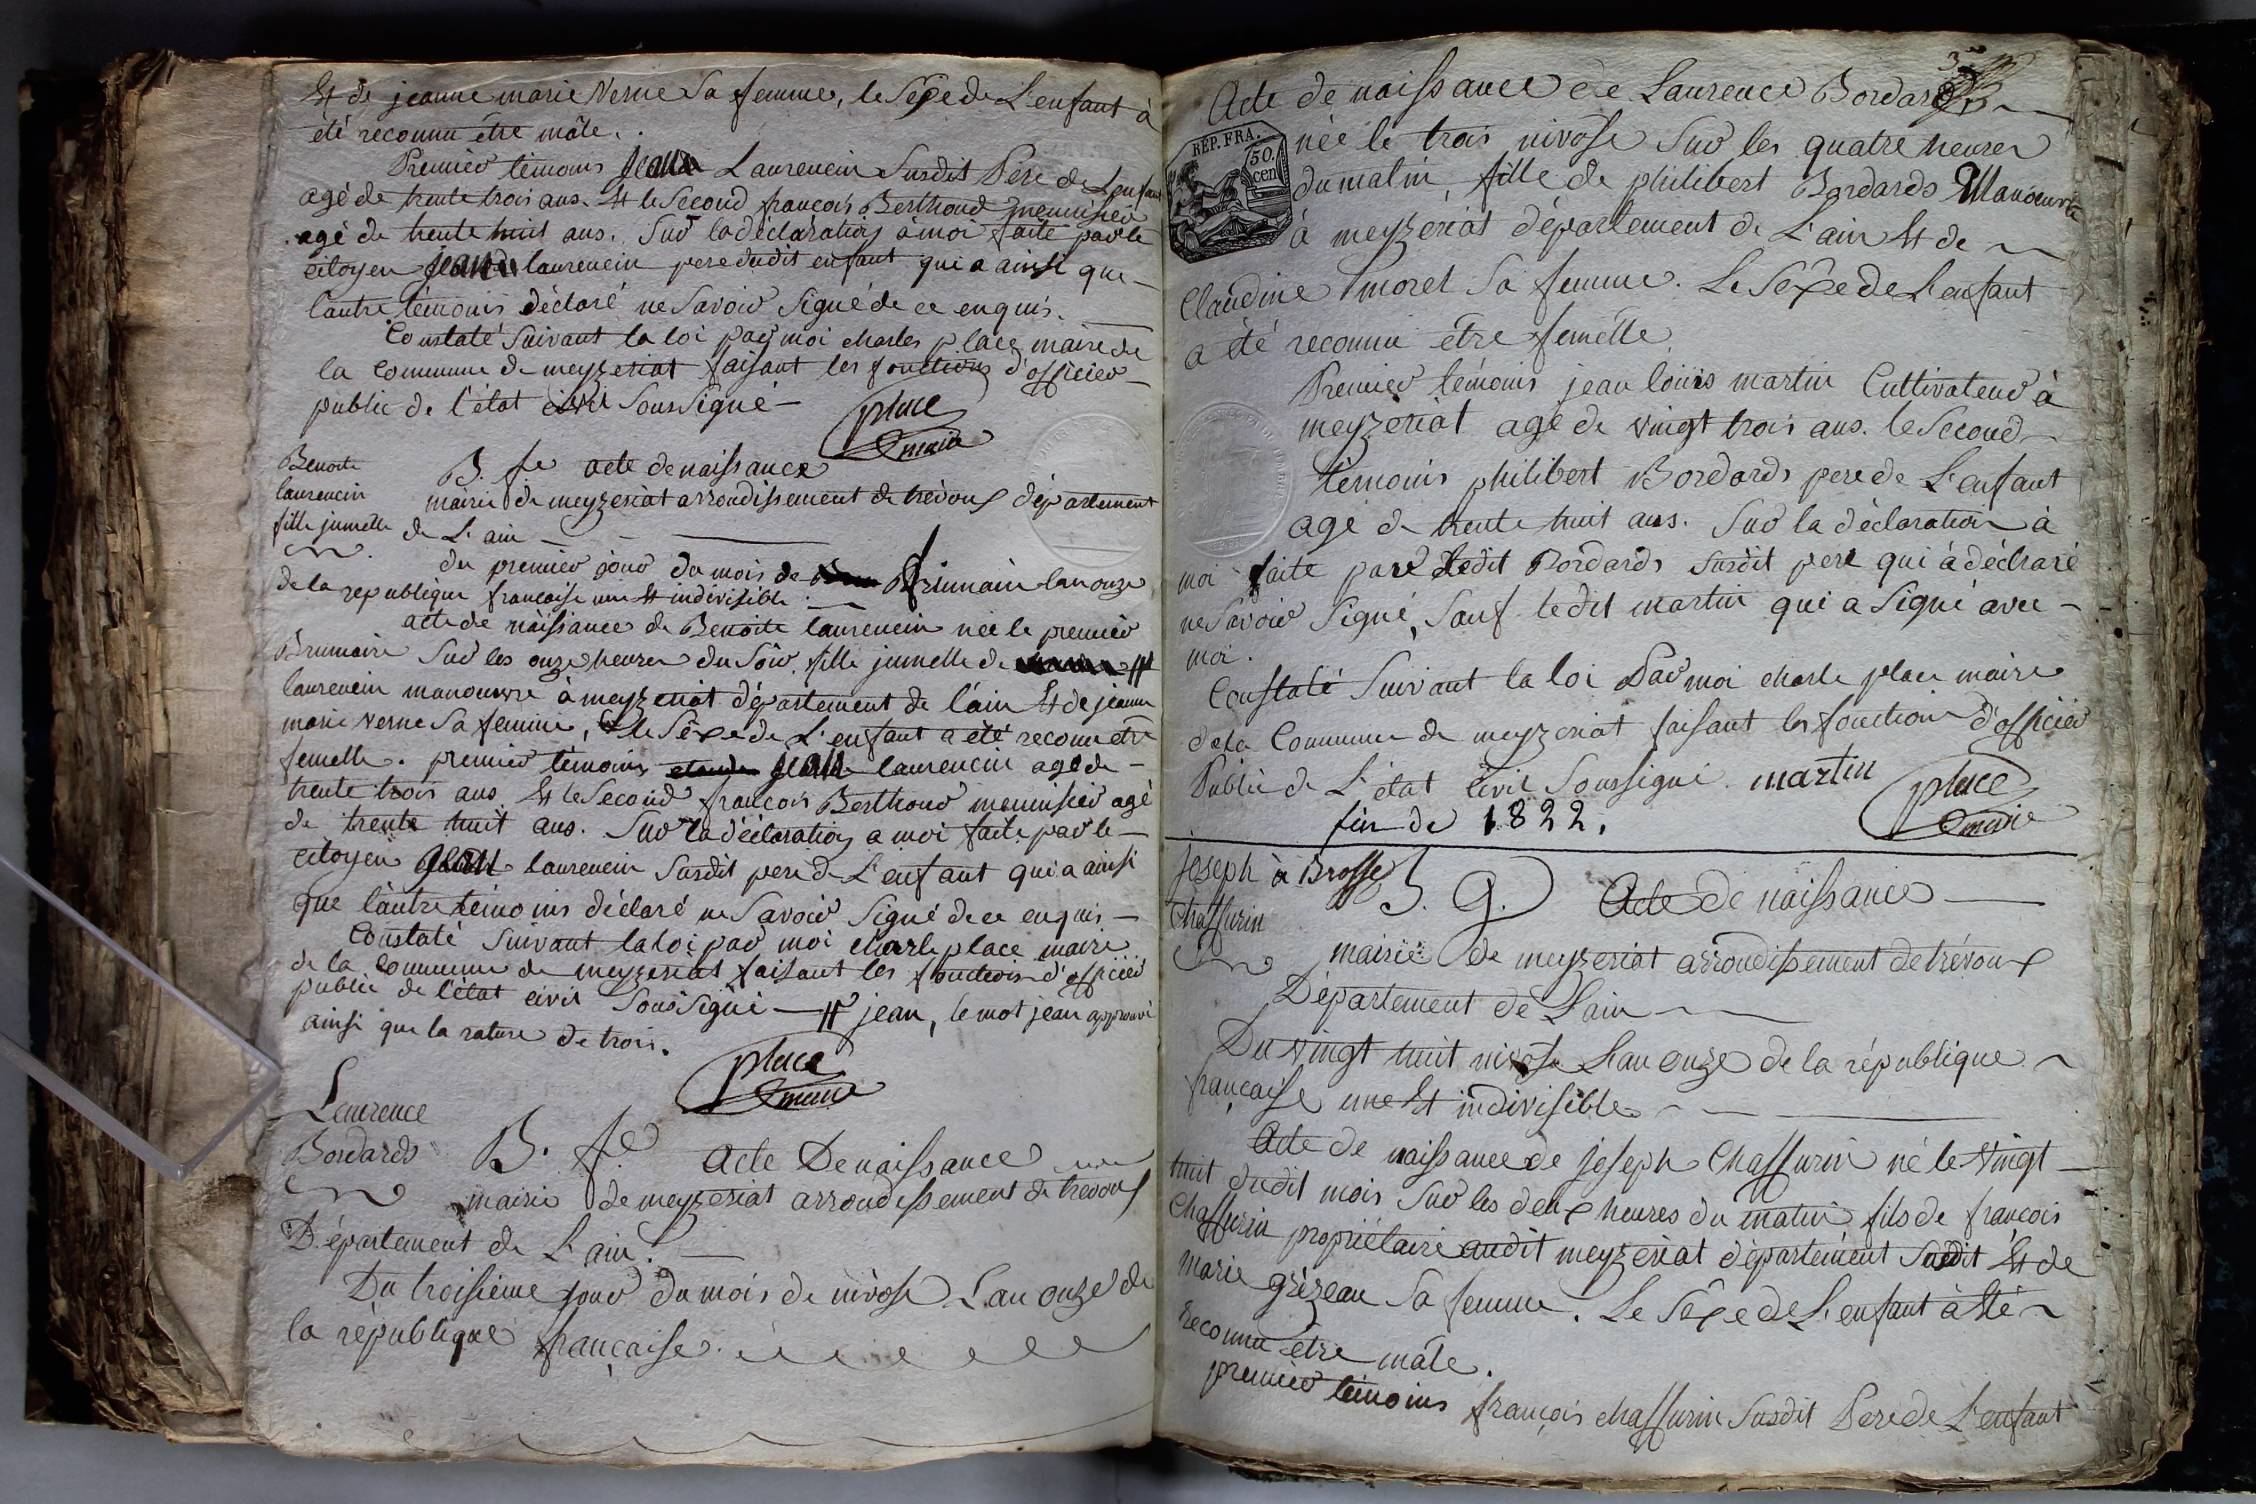 Et de jeanne marie Verne Sa femme, le Sexe de L'enfant à
été reconnu être mâle.
Premier témoins Jean Laurencin Susdit Père de L'enfant
agé de trente trois ans. Et le Second françois Berthoud menuisier
agé de trente huit ans. Sur la déclaration à moi faite par le
citoyen Jean laurencin pere dudit enfant qui a ainsi que
l'autre témoins déclaré ne Savoir Signé de ce enquis.
Constaté Suivant la loi par moi charles place maire de
la Commune de meyzeriat faisant les fonctions d'officier
public de l'état civil Soussigné
place
maire
Benoite
laurencin
fille jumelle
B. fe acte de naissance
mairie de meyzeriat arrondissement de trévoux département
de L'ain
du premier jour du mois de Brumaire lan onze
de la république française une Et indivisible
acte de naissance de Benoite laurencin née le premier
Brumaire Sur les onze heures du Soir, fille jumelle de #
laurencin manouvre à meyzeriat département de l'ain Et de jeanne
marie Verne Sa femme, le Sexe de L'enfant a été reconu etre
femelle. premier témoins Jean laurencin agé de
trente trois ans Et le Second françois Berthoud menuisier agé
de trente huit ans. Sur la déclaration a moi faite par le
citoyen Jean laurencin Susdit pere de L'enfant qui a ainsi
que l'autre témoins déclaré ne Savoir Signé de ce enquis
Constaté Suivant la loi par moi charle place maire
de la Commune de meyzeriat faisant les fonctions d'officier
public de l'état civil Soussigné # jean, le mot jean approuvé
ainsi que la rature de trois.
place
maire
Laurence
Bordards
B. fe Acte De naissance
mairie de meyzeriat arrondissement de trevoux
Département de L'ain.
Du troisieme jour du mois de nivose L'an onze de
la république française.
3
Acte de naissance de Laurence Bordard
REP. FRA.
50. cen
née le trois nivôse Sur les quatre heures
du matin, fille de philibert Bordards Manoeuvre
à meyzériat département de L'ain Et de
Claudine moret Sa femme. Le Sexe de L'enfant
a été reconnu être femelle
Premier témoins jean louis martin Cultivateur à
meyzeriat agé de vingt trois ans. le Second
témoins philibert Bordards pere de L'enfant
agé de trente huit ans. Sur la déclaration à
moi faite par ledit Bordards susdit pere qui à déclaré
ne Savoir Signé, Sauf ledit martin qui a Signé avec
moi.
Constaté Suivant la loi Par moi charle place maire
de la Commune de meyzeriat faisant les fonction d'officier
Public de L'état Civil Soussigné. martin
place
maire
fin de 1822.
joseph à Brosse
Chaffurin
B. G. Acte de naissance
mairie de meyzeriat arrondissement de trévoux
Département de L'ain
Du vingt huit nivôse L'an onze de la république
française une Et indivisible
Acte de naissance de joseph Chaffurin né le Vingt
huit dudit mois Sur les deux heures du matin fils de françois
Chaffurin propriétaire audit meyzeriat département Susdit Et de
marie grézeau Sa femme. Le Sexe de L'enfant à été
reconnu être mâle.
premier témoins françois chaffurin Susdit Pere de L'enfant